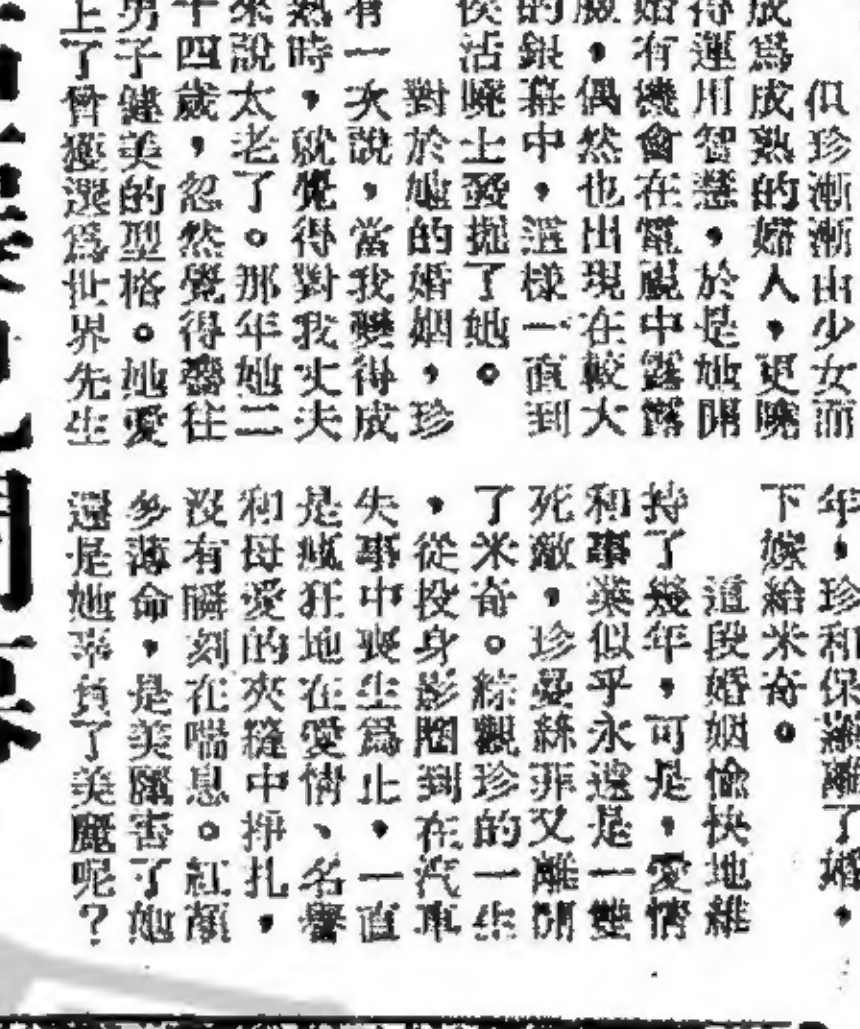 但珍漸漸由少女而
成爲成熟的婦人，更曉
得運用智慧，於是她開
始有機會在電視中露露
臉，偶然也出現在較大
的銀幕中，這樣一直到
侯活曉士發掘了她。
對於她的婚姻，珍
有一次說，當我變得成
熟時，就覺得對我丈夫
來說太老了。那年她二
十四歲，忽然覺得嚮往
男子健美的型格。她愛
上了曾獲選爲世界先生
年，珍和保羅離了婚，
下嫁給米奇。
這段婚姻愉快地維
持了幾年，可是，愛情
和事業似乎永遠是一雙
死敵，珍曼絲菲又離開
了米奇。綜觀珍的一生
，從投身影圈到在汽車
失事中喪生爲止，一直
是瘋狂地在愛情、名譽
和母愛的夾縫中掙扎，
沒有瞬刻在喘息。紅顏
多薄命，是美麗害了她
還是她辜負了美麗呢？